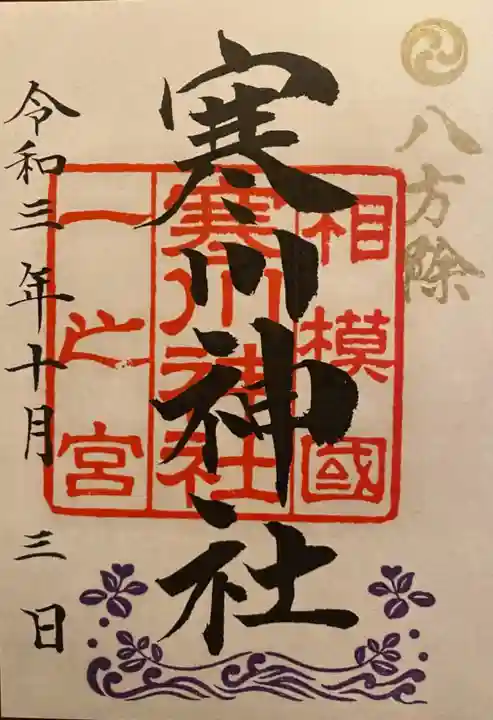 八方除
寒川神社
相模國
寒川神社
一之宮
令和三年十月三日